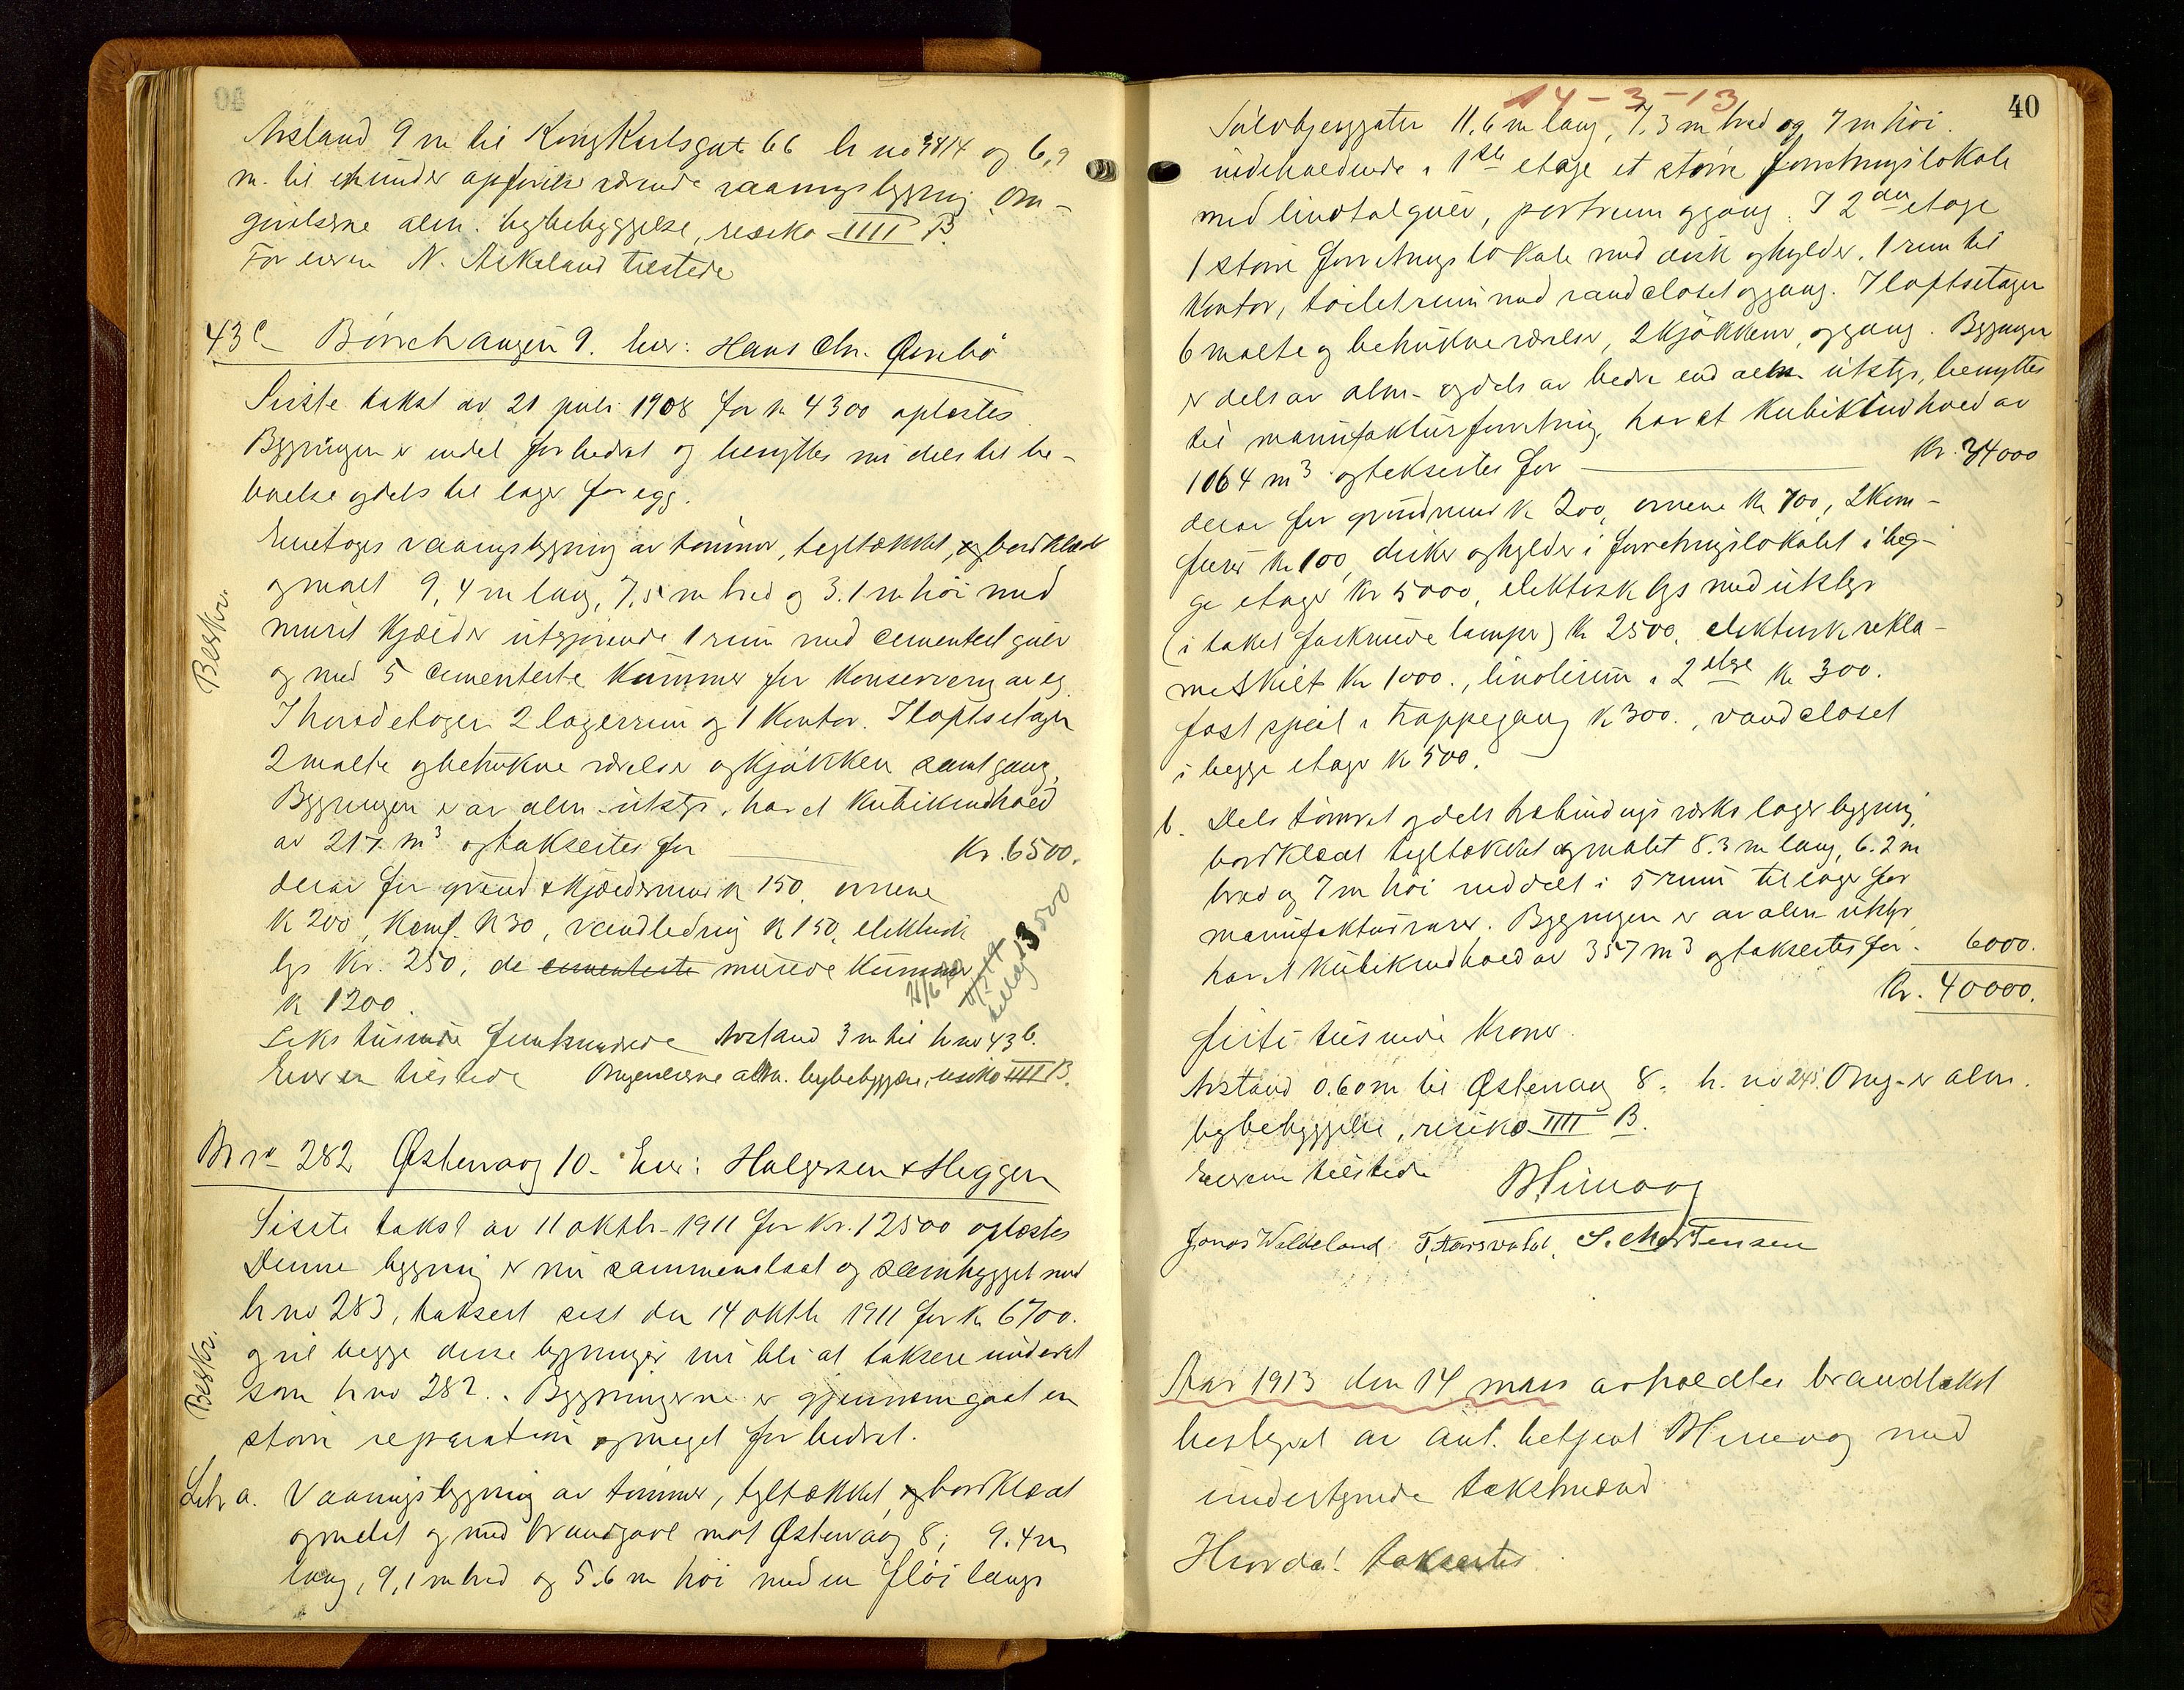 Avstand 9 m til Kong Karlsgate 66 br no 3814 og 6,9
m. til en under opførelse værende vaaningsbygning. Om-
givelserne alm. bybebyggelse, resiko IIII B.
For eieren N. Askeland tilstede
43c Børehaugen 9. Eier: Hans Chr. Ørebø
Siste takst av 21 juli 1908 for kr 4300 oplæstes.
Bygningen er endel forbedret og benyttes nu dels til be-
boelse og dels til lager for egg.
Beskr.
Enetages vaaningsbygning av tømmer, tegltækket, og bordklædt
og malt 9,4 m lang, 7,5 m bred og 3.1 m høi med
muret kjælder utgjørende 1 rum med cementert gulv
og med 5 cementerte kummer for konservering av eg.
I hovedetagen 2 lagerrum og 1 kontor. I loftsetagen
2 malte og betrukne værelser og kjøkken samt gang.
Bygningen er av alm. utstyr, har et kubikindhold
av 217 m³ og takseres for Kr. 6500.
derav for grund & kjældermur kr 150, ovnene
kr 200, komf. kr 30, vandledning kr 150, elektrisk
lys Kr. 250, de cementerte murede kummer
kr 1200.
21/6 20 13000
Seks tusinde femhundrede Avstand 3 m til br no 43 b.
Eieren tilstede Omgivelserne alm. bybebyggelse, resiko IIII B.
Br no 282 Østervaag 10. Eier: Halgersen & Heggen
Siste takst av 11 oktbr. 1911 for Kr. 12500 oplæstes
Beskr.
Denne bygning er nu sammenslaat og sambygget med
br no 283, taksert sist den 14 oktb 1911 for kr 6700.
og vil begge disse bygninger nu bli at taksere under et
som br no 282. Bygningerne er gjennemgaat en
større reparation og meget forbedret.
Litr a. Vaaningsbygning av tømmer, tegltækket, og bordklædt
og malet og med brandgavl mot Østervaag 8; 9.4 m
lang, 9,1 m bred og 5.6 m høi med en fløi langs
14-3-13
40
Sølvbjerggaten 11,6 m lang, 7,3 m bred og 7 m høi.
indeholdende i 1ste etage et større forretningslokale
med linotolgulv, portrum og gang. I 2den etage
1 større forretningslokale med disk og hylder, 1 rum til
kontor, toiletrum med vandcloset og gang. I loftsetagen
6 malte og betrukne værelser, 2 kjøkkener, og gang. Bygningen
er dels av alm. og dels av bedre end alm. utstyr, benyttes
til manufakturforretning, har et kubikindhold av
1064 m³ og takseres for Kr. 34000
derav for grundmur kr 200, ovnene kr 700, 2 kom-
furer kr 100, disker og hylder i forretningslokalet i beg-
ge etager kr 5000, elektrisk lys med utstyr
(i taket forskruede lamper) kr 2500, elektrisk rekla-
meskilt kr 1000., linoleum i 2 etage kr 300.
fast speil i trappegang kr 300., vandcloset
i begge etager kr 500.
b. Dels tømret og dels av bindingsverks lagerbygning,
bordklædt tegltækket og malet 8.3 m lang, 6.2 m
bred og 7 m høi inddelt i 5 rum til lager for
manufakturvarer. Bygningen er av alm. utstyr
har et kubikindhold av 357 m³ og takseres for 6000.
Kr. 40000.
firti tusinde kroner.
Avstand 0.60 m til Østervaag 8. br. no 245. Omg. er alm.
bybebyggelse, resiko IIII B.
Eierne tilstede
Jonas Waldeland. S. Mortensen
Aar 1913 den 14 mars avholdtes brandtakst
bestyret av aut. betjent med
undertegnede takstmænd
Hvorda! takseres